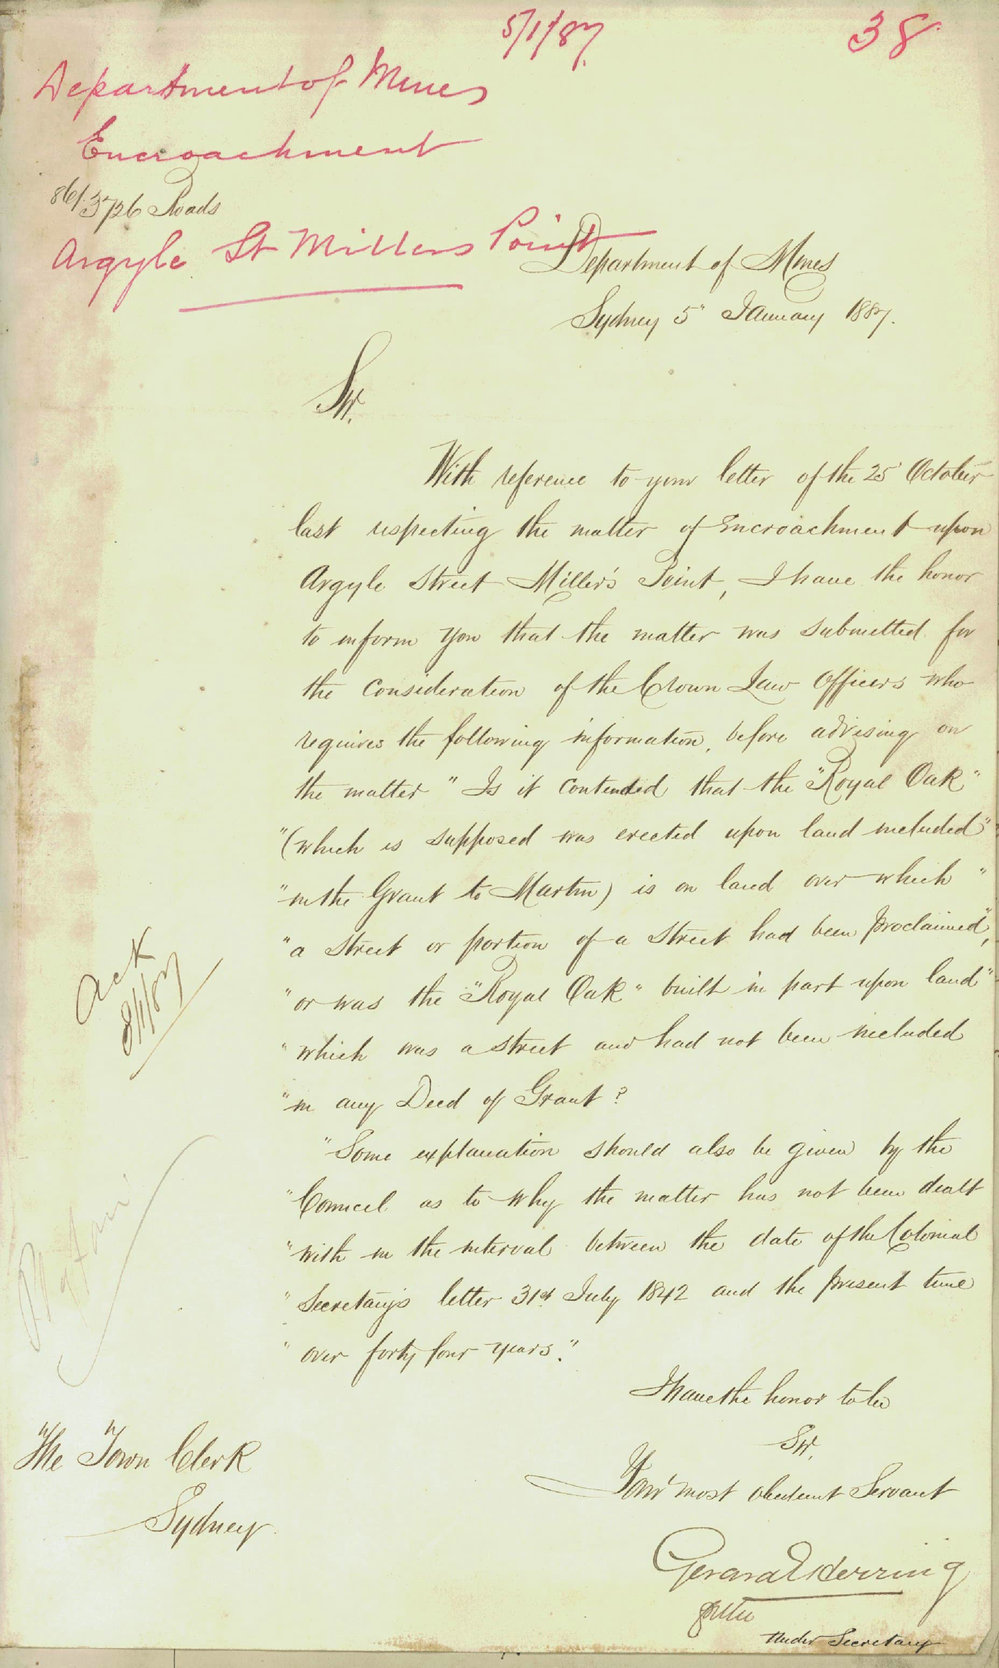 5/1/87.
38
Department of Mines
Encroachment
86/3726 Roads
Argyle St Millers Point
Department of Mines
Sydney 5" January 1887.
Sir.
With reference to your letter of the 25 October
last respecting the matter of Encroachment upon
Argyle Street Miller's Point, I have the honor
to inform you that the matter was submitted for
the consideration of the Crown Law Officers who
requires the following information, before advising on
the matter " Is it contended that the "Royal Oak"
"(which is supposed was erected upon land included"
"in the Grant to Martin) is on land over which "
"a street or portion of a street had been proclaimed,"
"or was the "Royal Oak" built in part upon land"
"which was a street and had not been included
"in any Deed of Grant?
"Some explanation should also be given by the
"Council as to why the matter has not been dealt
"with in the interval between the date of the Colonial
"Secretary's letter 31st July 1842 and the present time
"over forty four years."
Ack
8/1/87
I have the honor to be
Sir,
Your most obedient Servant
The Town Clerk
Sydney.
Gerard E Herring
for the
Under Secretary